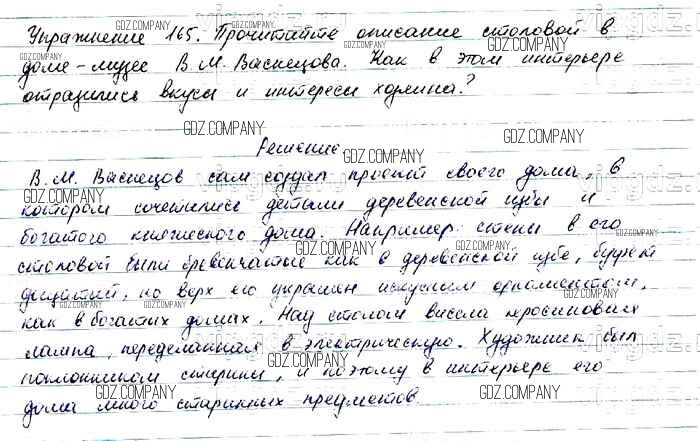 Упражнение 165. Прочитайте описание столовой в
доме-музее В.М. Васнецова. Как в этом интерьере
отразились вкусы и интересы хозяина?
Решение
В.М. Васнецов сам создал проект своего дома, в
котором сочетались детали деревенской избы и
богатого княжеского дома. Например стены в его
столовой были бревенчатые как в деревенской избе, буфет
дощатый, но верх его украшен искусным орнаментом,
как в богатых домах. Над столом висела керосиновая
лампа, переделанная в электрическую. Художник был
поклонником старины, и поэтому в интерьере его
дома много старинных предметов
GDZ.COMPANY